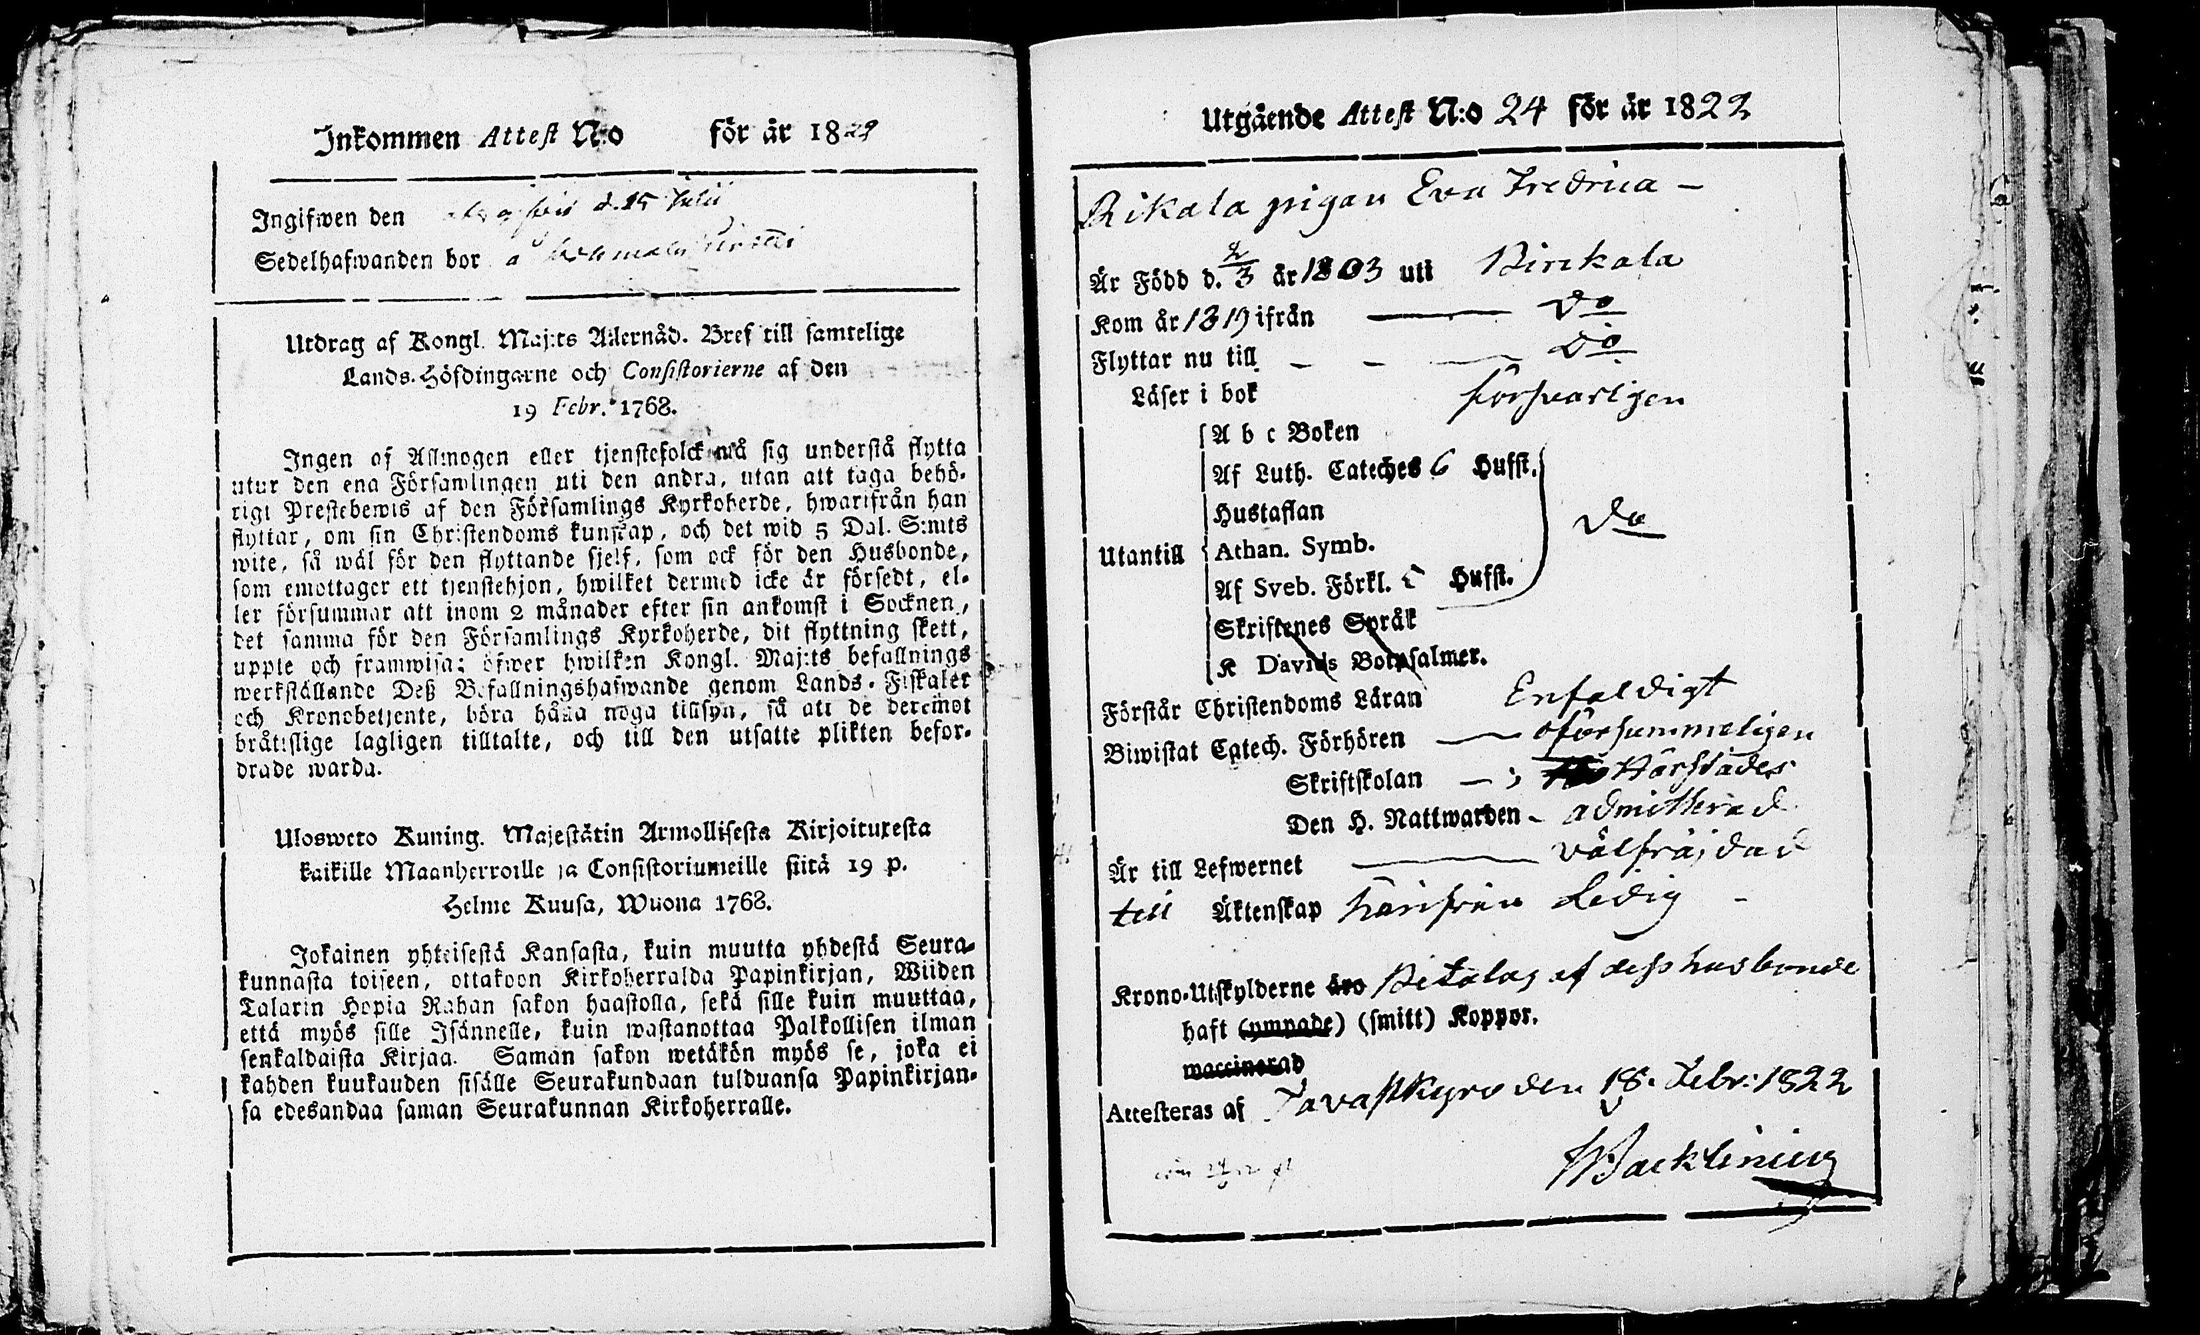 Inkommen Attest N:o för år 1822
Ingifwen den d. 15 Julii
Sedelhafwanden bor å
Utdrag af Kongl. Maj:ts Allernåd. Bref till samtelige
Lands-Höfdingarne och Consistorierne af den
19 Febr. 1768.
Ingen af Allmogen eller tjenstefolck må sig understå flytta
utur den ena Församlingen uti den andra, utan att taga behö-
rigt Prestebewis af den Församlings Kyrkoherde, hwarifrån han
flyttar, om sin Christendoms kunskap, och det wid 5 Dal. S:mts
wite, så wäl för den flyttande sjelf, som ock för den Husbonde,
som emottager ett tjenstehjon, hwilket dermed icke är försedt, el-
ler försummar att inom 2 månader efter sin ankomst i Socknen,
det samma för den Församlings Kyrkoherde, dit flyttning skett,
uppte och framwisa; öfwer hwilken Kongl. Maj:ts befallnings
werkställande Deß Befallningshafwande genom Lands-Fiskaler
och Kronobetjente, böra hålla noga tillsyn, så att de deremot
bråtislige lagligen tilltalte, och till den utsatte plikten befor-
drade warda.
Ulosweto Kuning. Majestätin Armollisesta Kirjoituxesta
kaikille Maanherroille ja Consistoriumeille siitä 19 p.
Helme Kuusa, Wuona 1768.
Jokainen yhteisestä Kansasta, kuin muutta yhdestä Seura-
kunnasta toiseen, ottakoon Kirkoherralda Papinkirjan, Wiiden
Talarin Hopia Rahan sakon haastolla, sekä sille kuin muuttaa,
että myös sille Isännelle, kuin wastanottaa Palkollisen ilman
senkaldaista Kirjaa. Saman sakon wetäkön myös se, joka ei
kahden kuukauden sisälle Seurakundaan tulduansa Papinkirjan-
sa edesandaa saman Seurakunnan Kirkoherralle.
Utgående Attest N:o 24 för år 1822
Rikala pigan Eva Fredrica –
Är Född d. 2/3 år 1803 uti Birckala
Kom år 1819 ifrån — Do
Flyttar nu till – – — Do
Läser i bok försvarligen
A b c Boken
Af Luth. Cateches 6 Hufst.
Hustaflan
Utantill Athan. Symb. Do
Af Sveb. Förkl. 5 Hufst.
Skriftenes Språk
K Davids Botpsalmer.
Förstår Christendoms Läran Enfaldigt
Biwistat Catech. Förhören — oförsummeligen
Skriftskolan — Härstädes
Den H. Nattwarden – admitterad
Är till Lefwernet — välfräjdad
till Äktenskap härifrån Ledig –
Krono-Utskylderne äro Betalas af dess husbonde
haft (ympade) (smitt) Koppor.
waccinerad
Attesteras af Tavastkyro den 18. Febr: 1822
W Backlinius